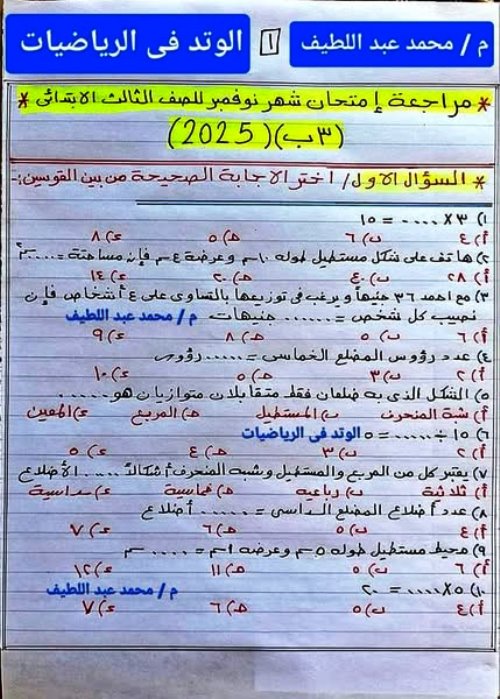 م / محمد عبد اللطيف ١ الوتد فى الرياضيات
* مراجعة إمتحان شهر نوفمبر للصف الثالث الابتدائى *
(٣ب)(2025)
* السؤال الاول/ اختر الاجابة الصحيحة من بين القوسين:-
١) ٣ × .... = ١٥
أ) ٤ ب) ٦ هـ) ٥ د) ٨
٢) هاتف على شكل مستطيل طوله ١٠سم وعرضه ٤سم فإن مساحته = ..... سم٢
أ) ٢٨ ب) ٤٠ هـ) ٢٠ د) ١٤
٣) مع احمد ٣٦ جنيهاً ويرغب فى توزيعها بالتساوى على ٤ أشخاص فإن
نصيب كل شخص = ...... جنيهات م / محمد عبد اللطيف
أ) ٦ ب) ٥ هـ) ٨ د) ٩
٤) عدد رؤوس المضلع الخماسى = ...... رؤوس
أ) ٢ ب) ٣ هـ) ٥ د) ١٠
٥) الشكل الذى به ضلعان فقط متقابلان متوازيان هو.......
أ) شبة المنحرف ب) المستطيل هـ) المربع د) المعين
٦) ١٥ ÷ ..... = ٥ الوتد فى الرياضيات
أ) ٢ ب) ٣ هـ) ٤ د) ٥
٧) يعتبر كل من المربع والمستطيل وشبه المنحرف أشكالاً ..... الأضلاع
أ) ثلاثية ب) رباعية هـ) خماسية د) سداسية
٨) عدد أضلاع المضلع السداسى = ...... أضلاع
أ) ٤ ب) ٥ هـ) ٦ د) ٧
٩) محيط مستطيل طوله ٥سم وعرضه ١سم = ..... سم
أ) ٦ ب) ٥ هـ) ١١ د) ١٢
١٠) ٥ × ..... = ٢٠ م / محمد عبد اللطيف
أ) ٤ ب) ٥ هـ) ٦ د) ٧